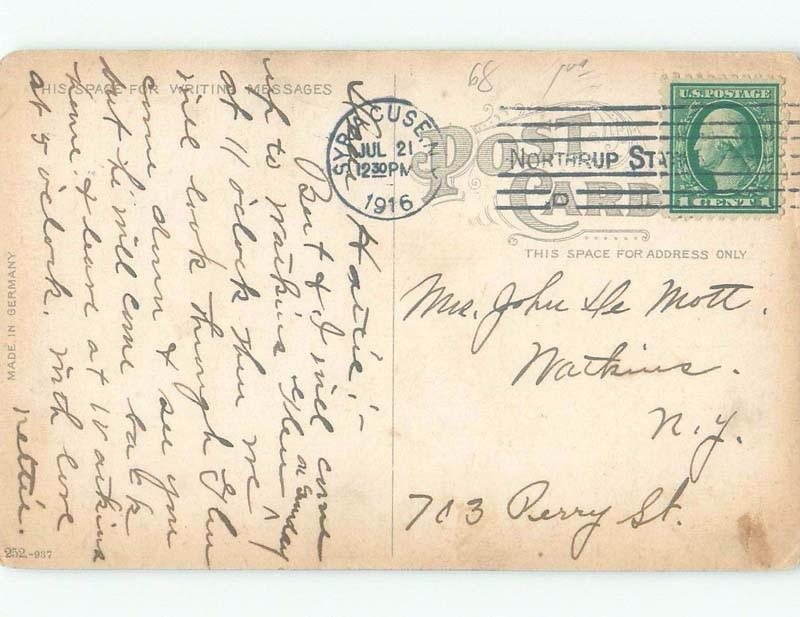 68
THIS SPACE FOR WRITING MESSAGES
Dear Hattie!-
Bert & I will come
up to Watkins Glen on Sunday
at 11 o'clock then we
will look through Glen
come down & see you
but he will come back
home & leave at Watkins
at 5 o'clock. With love
Nettie.
MADE IN GERMANY
252-937
SYRACUSE N.Y.
JUL 21
1230PM
1916
NORTHRUP STA
D
POST CARD
U.S. POSTAGE
1 CENT 1
THIS SPACE FOR ADDRESS ONLY
Mrs. John De Mott.
Watkins.
N.Y.
703 Perry St.